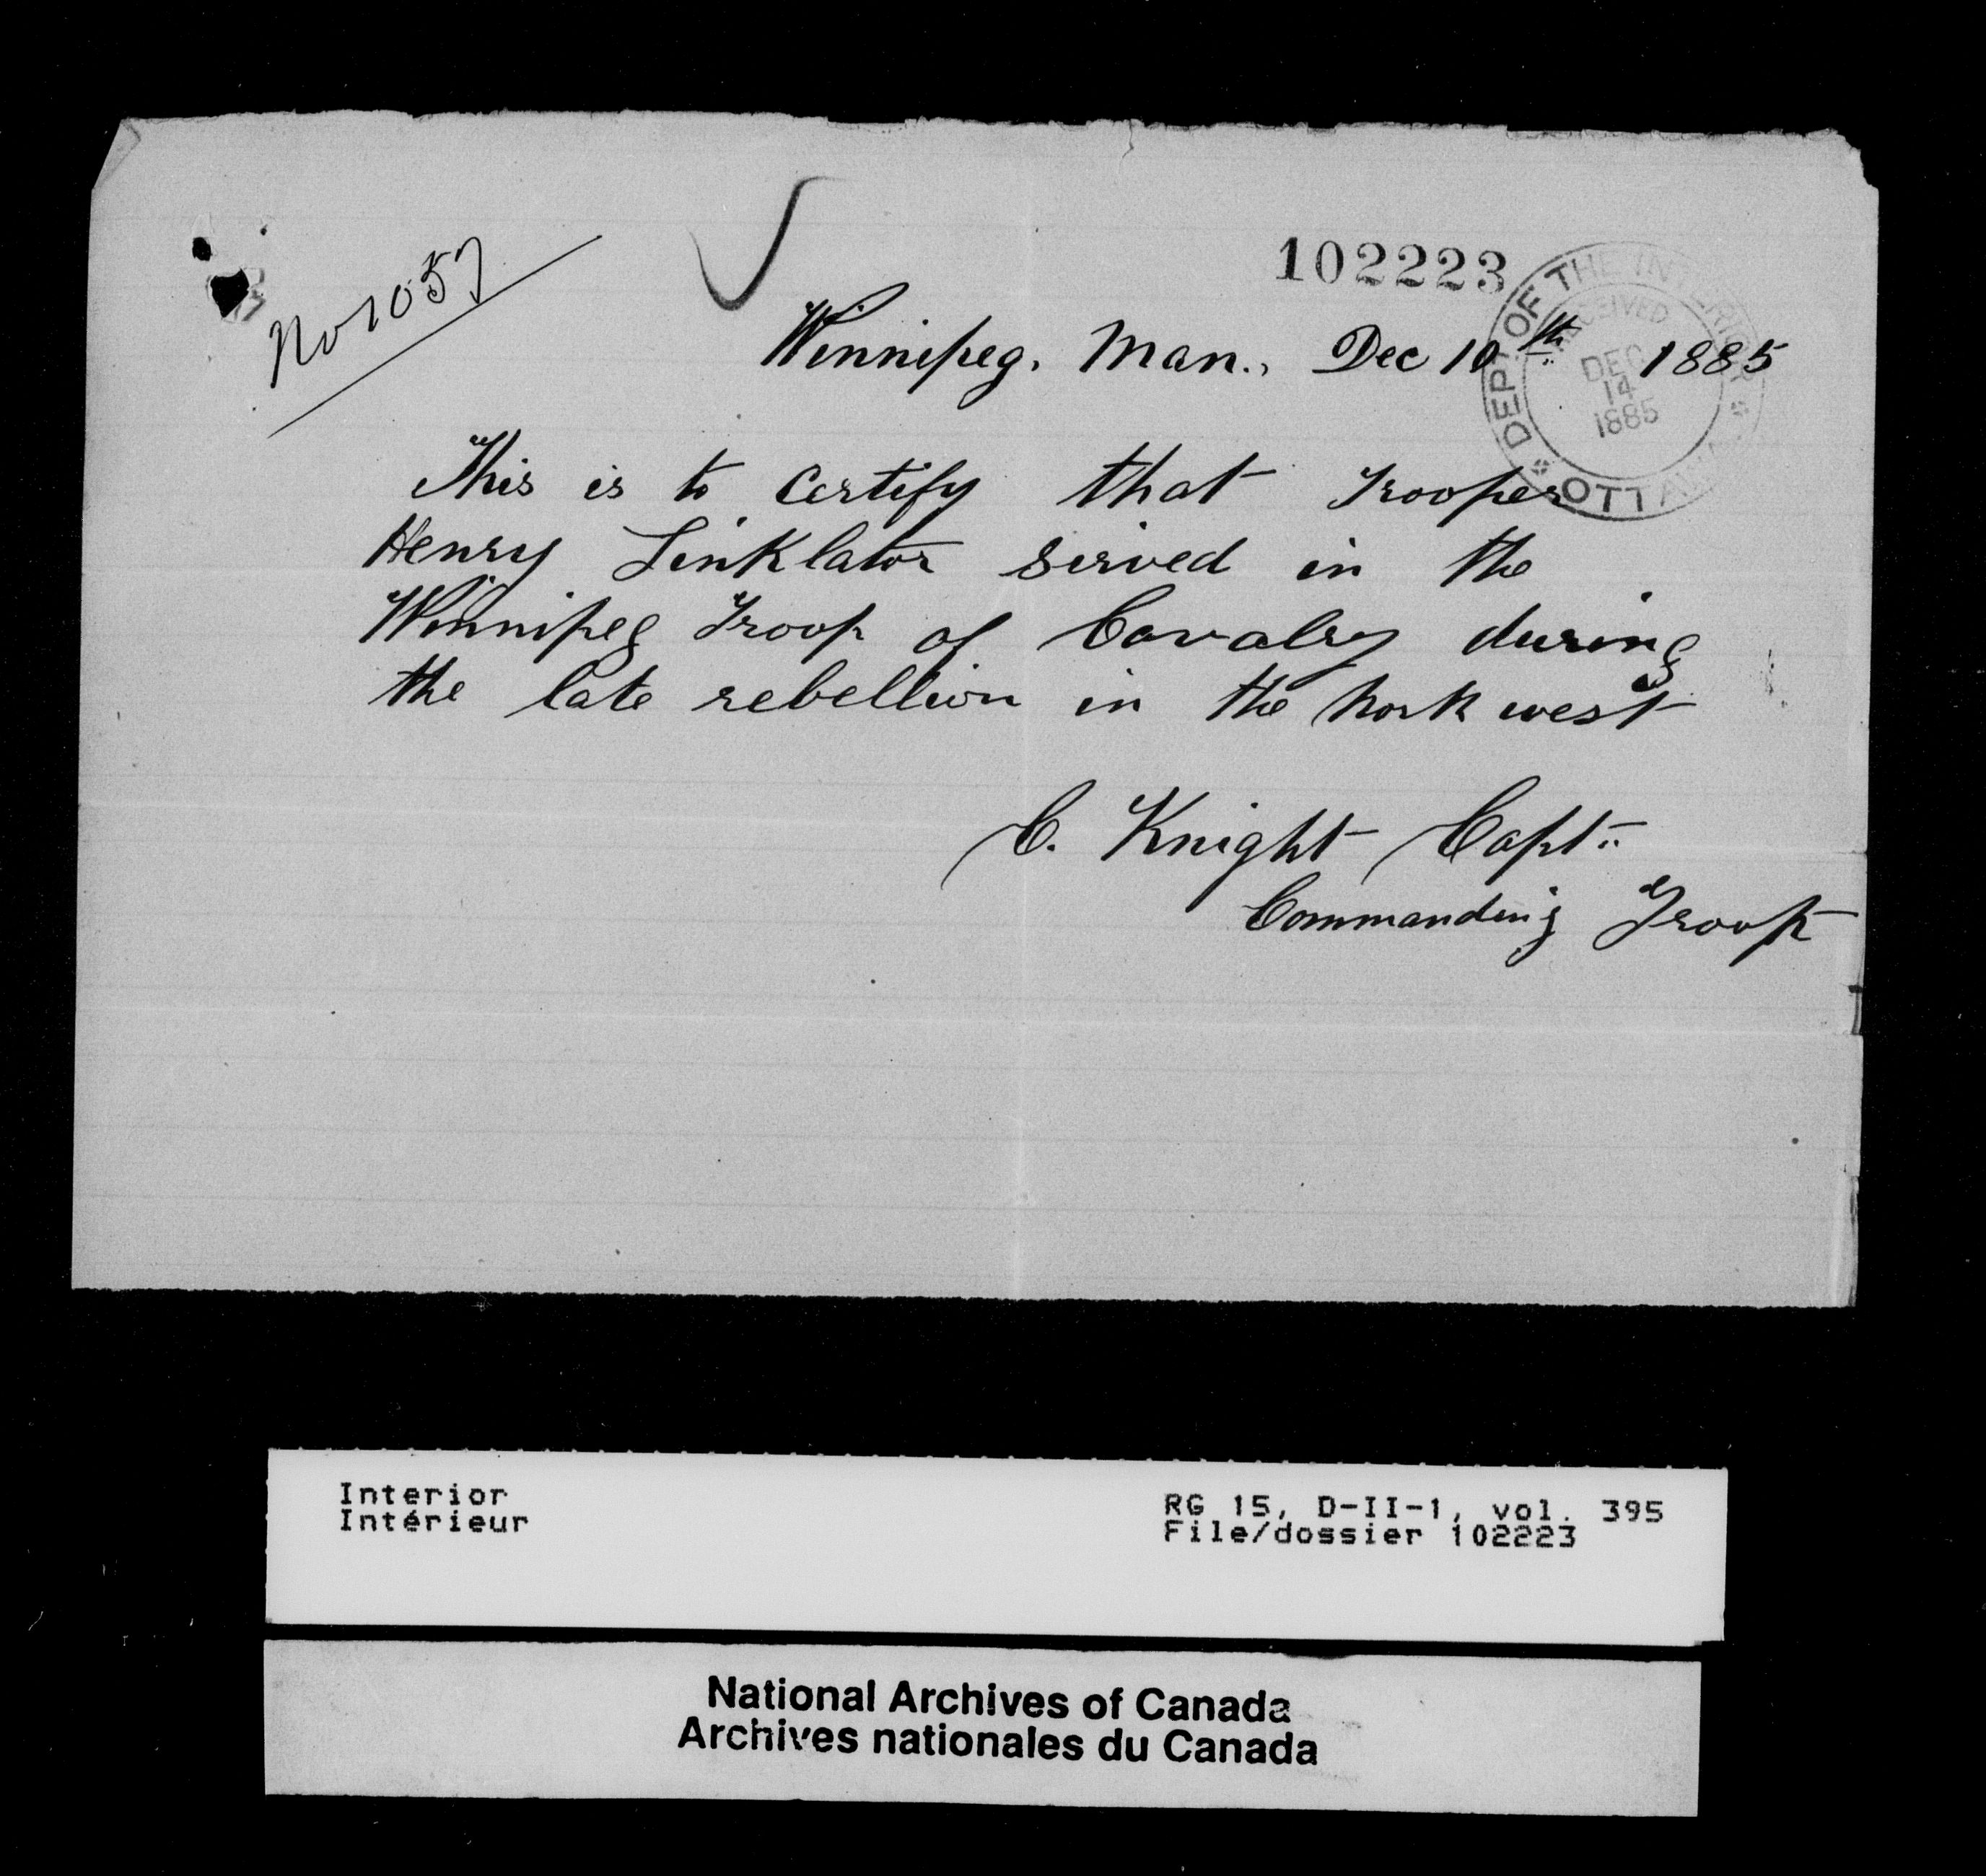 No 1057
102223
DEPT OF THE INTERIOR
RECEIVED
DEC
14
1885
OTTAWA
Winnipeg, Man., Dec 10th 1885
This is to certify that Trooper
Henry Linklator served in the
Winnipeg Troop of Cavalry during
the late rebellion in the North west
C. Knight Capt.
Commanding Troop
Interior
Intérieur
RG 15, D-II-1, vol. 395
File/dossier 102223
National Archives of Canada
Archives nationales du Canada